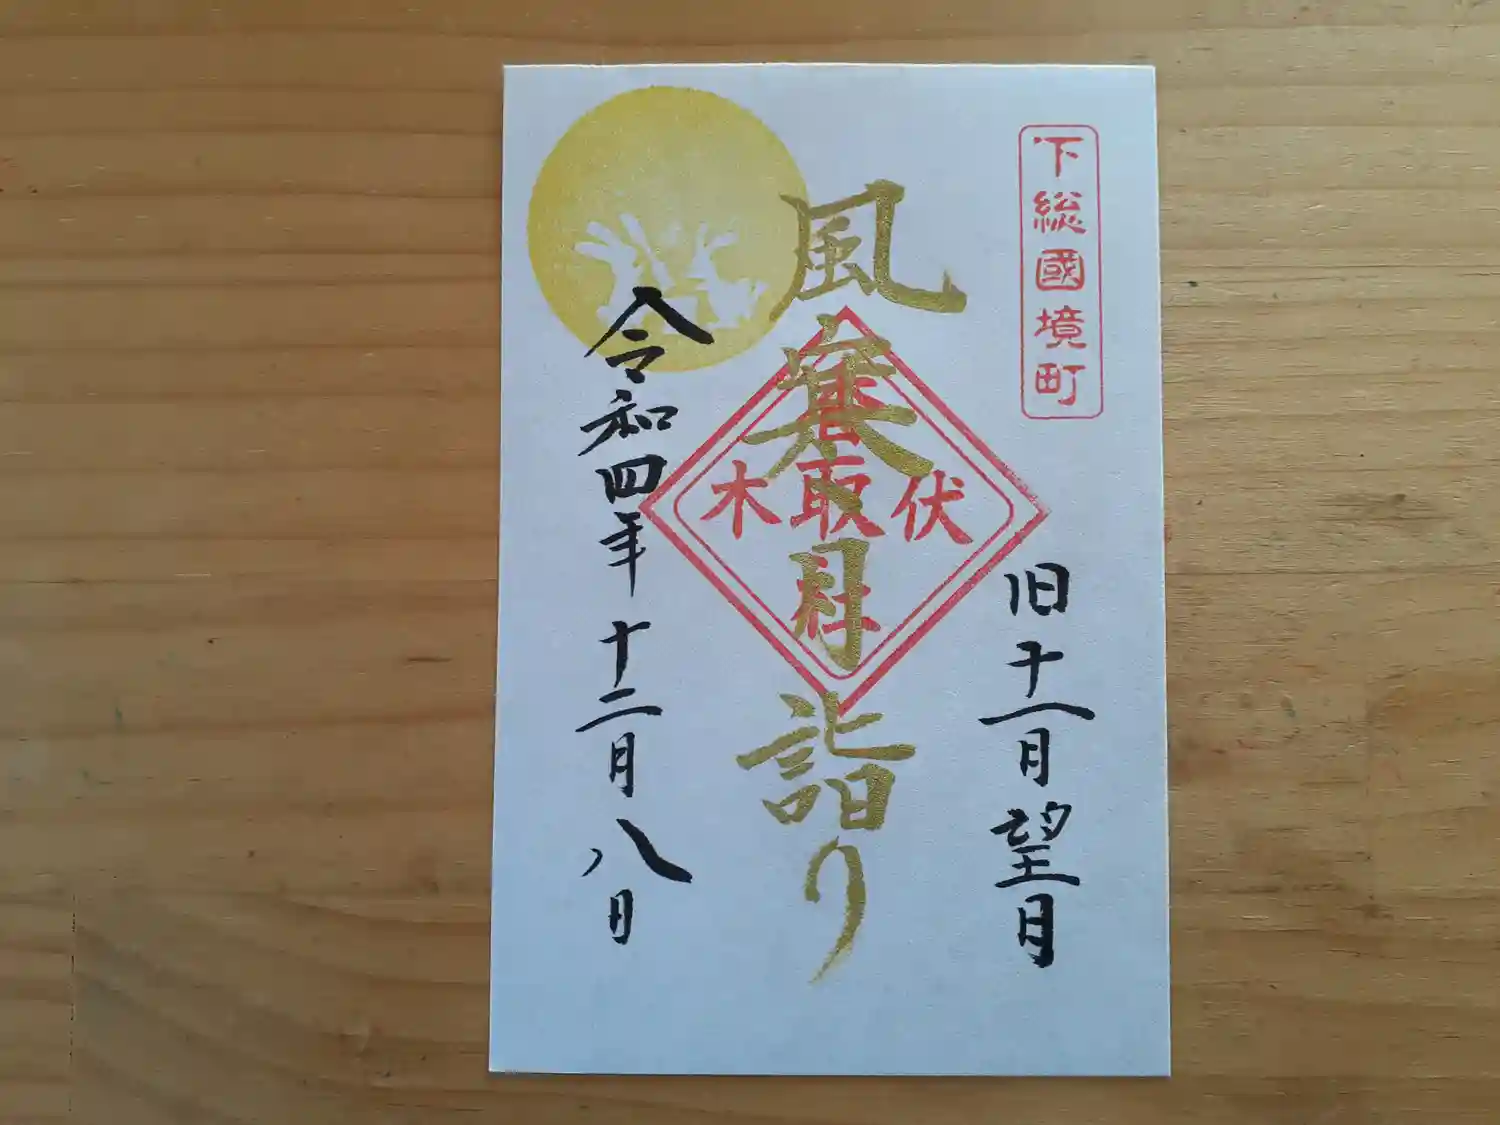 下総國境町
旧十一月望月
風寒月詣り
伏木
香取社
令和四年十二月八日